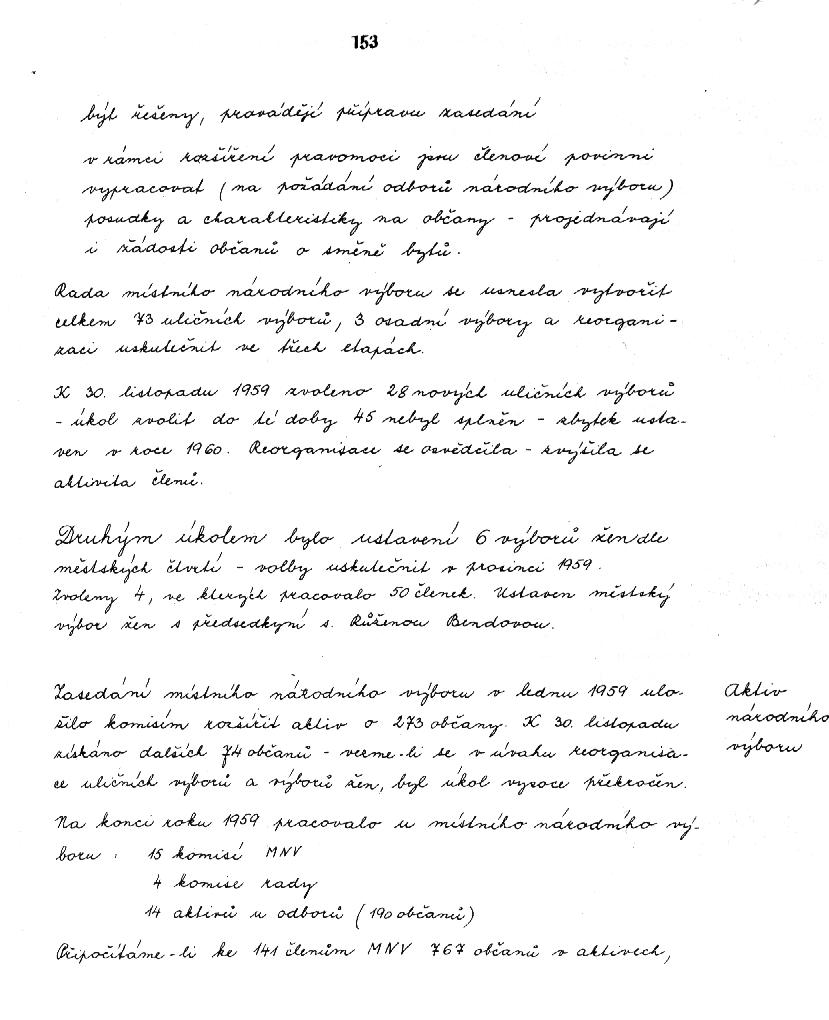 153
být řešeny, provádějí přípravu zasedání
v rámci rozšíření pravomoci jsou členové povinni
vypracovat (na požádání odborů národního výboru)
posudky a charakteristiky na občany - projednávají
i žádosti občanů o směně bytů.
Rada místního národního výboru se usnesla vytvořit
celkem 73 uličních výborů, 3 osadní výbory a reorgani-
zaci uskutečnit ve třech etapách.
K 30. listopadu 1959 zvoleno 28 nových uličních výborů
- úkol zvolit do té doby 45 nebyl splněn - zbytek usta-
ven v roce 1960. Reorganisace se osvědčila - zvýšila se
aktivita členů.
Druhým úkolem bylo ustavení 6 výborů žen dle
městských čtvrtí - volby uskutečnit v prosinci 1959.
Zvoleny 4, ve kterých pracovalo 50 členek. Ustaven městský
výbor žen s předsedkyní s. Růženou Bendovou.
Zasedání místního národního výboru v lednu 1959 ulo-
žilo komisím rozšířit aktiv o 273 občany. K 30. listopadu
získáno dalších 74 občanů - verme-li se v úvahu reorganisa-
ce uličních výborů a výborů žen, byl úkol vysoce překročen.
Aktiv
národního
výboru
Na konci roku 1959 pracovalo u místního národního vý-
boru: 15 komisí MNV
4 komise rady
14 aktivů u odborů (190 občanů)
Připočítáme-li ke 141 členům MNV 767 občanů v aktivech,